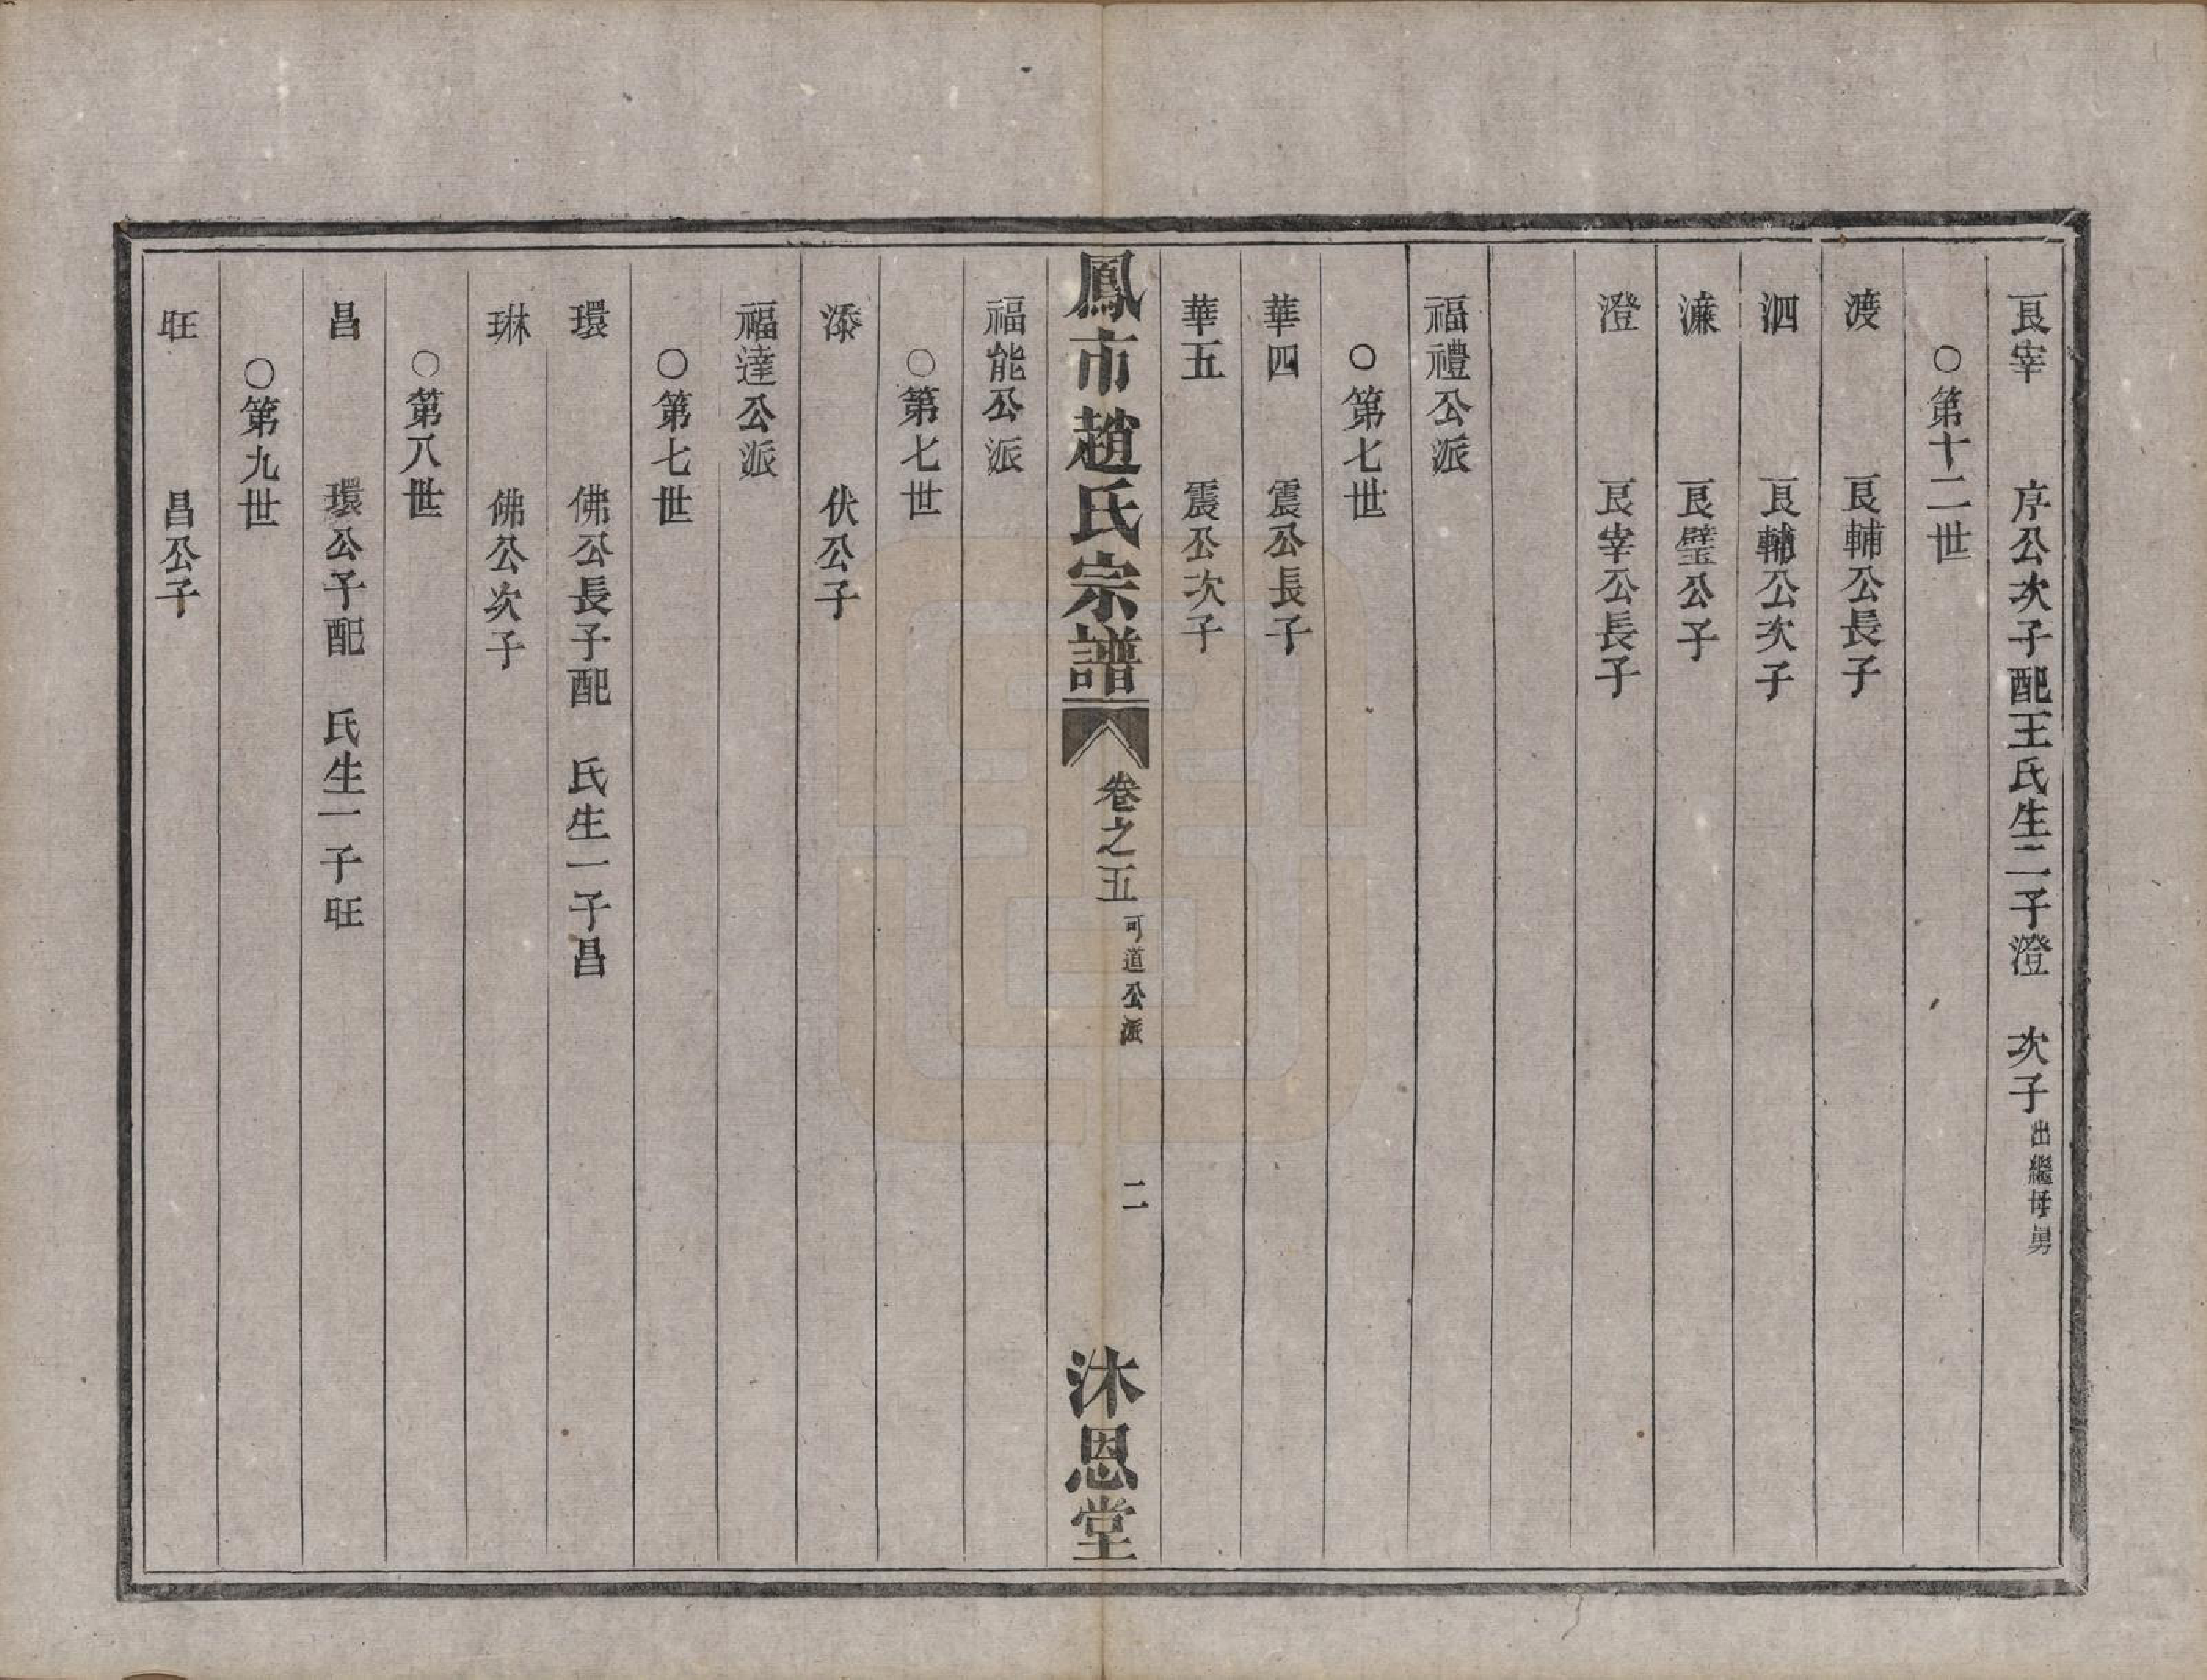 良宰　序公次子配王氏生二子澄　次子出繼母舅
○第十二世
渡　良輔公長子
泗　良輔公次子
濂　良璧公子
澄　良宰公長子
福禮公派
○第七世
華四　震公長子
華五　震公次子
鳳市趙氏宗譜　卷之五　可道公派　二　沐恩堂
福能公派
○第七世
添　伏公子
福達公派
○第七世
環　佛公長子配　氏生一子昌
琳　佛公次子
○第八世
昌　環公子配　氏生一子旺
○第九世
旺　昌公子